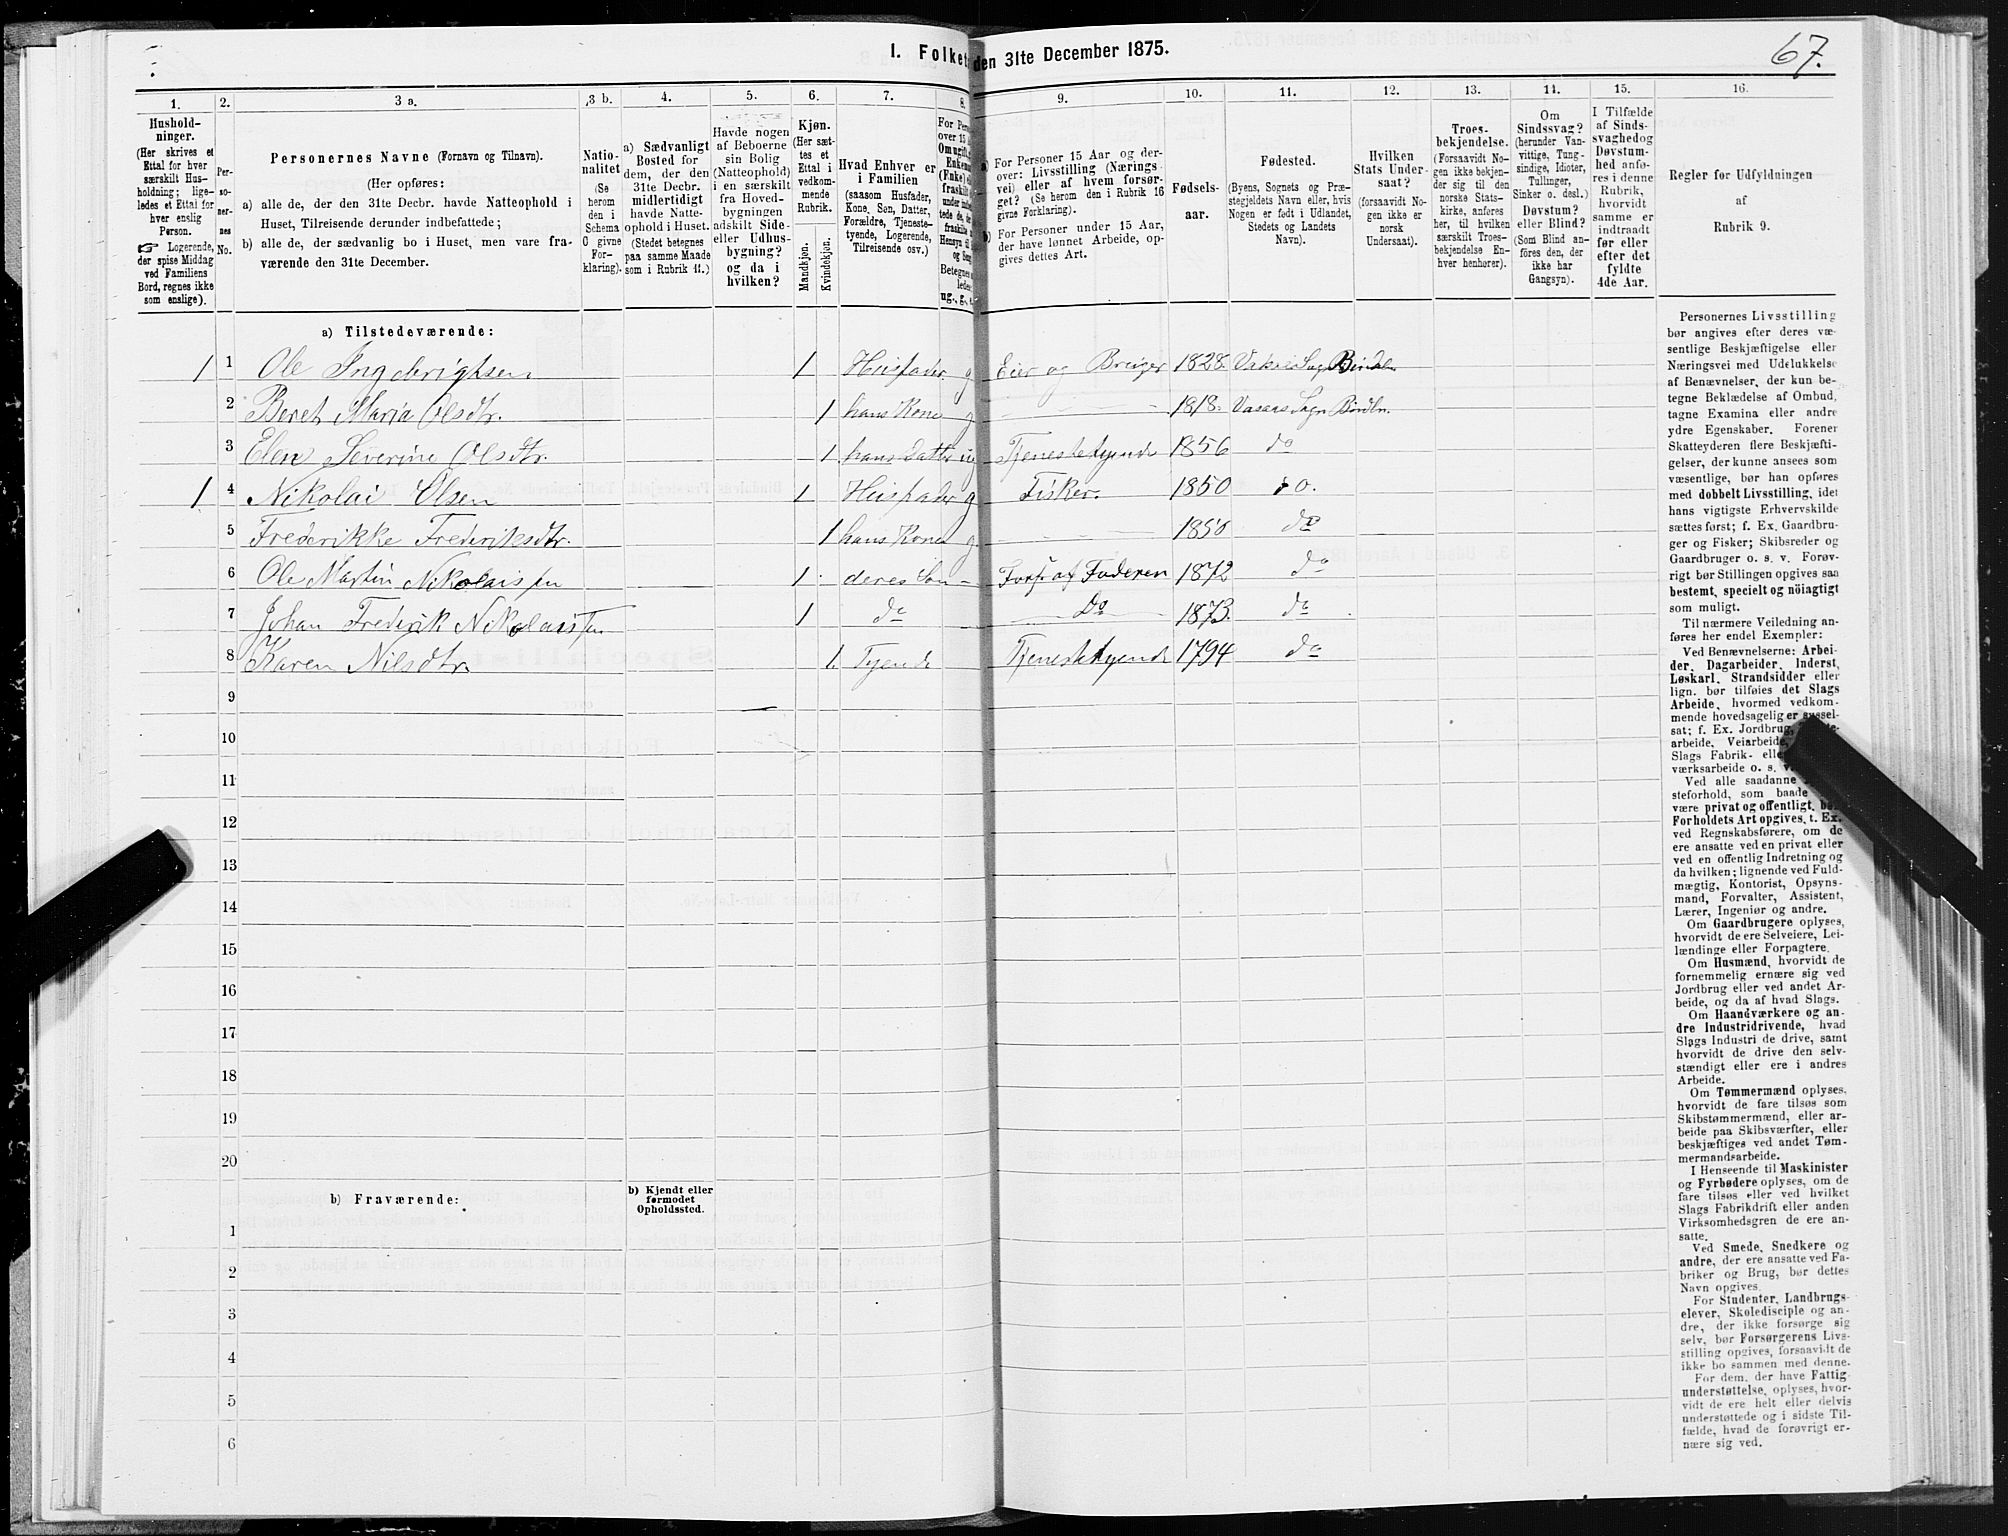 1. Folket den 31te December 1875.
67.
1.
2.
3 a.
3 b.
4.
5.
6.
7.
8.
9.
10.
11.
12.
13.
14.
15.
16.
Hushold-
ninger.
(Her skrives et
Ettal for hver
særskilt Hus-
holdning; lige-
ledes et Ettal for
hver enslig
Person.
☞ Logerende,
der spise Middag
ved Familiens
Bord, regnes ikke
som enslige).
Per-
so-
ner-
nes
No.
Personernes Navne (Fornavn og Tilnavn).
(Her opføres:
a) alle de, der den 31te Decbr. havde Natteophold i
Huset, Tilreisende derunder indbefattede;
b) alle de, der sædvanlig bo i Huset, men vare fra-
værende den 31te December.
Natio-
nalitet
(Se
herom
den i
Schema
C givne
For-
klaring).
a) Sædvanligt
Bosted for
dem, der den
31te Decbr.
midlertidigt
havde Natte-
ophold i Huset.
(Stedet betegnes
paa samme Maade
som i Rubrik 11.)
Havde nogen
af Beboerne
sin Bolig
(Natteophold)
i en særskilt
fra Hoved-
bygningen
adskilt Side-
eller Udhus-
bygning?
og da i
hvilken?
Kjøn.
(Her sæt-
tes et
Ettal i
vedkom-
mende
Rubrik.
Mandkjøn.
Kvindekjøn.
Hvad Enhver er
i Familien
(saasom Husfader,
Kone, Søn, Datter,
Forældre, Tjeneste-
tyende, Logerende,
Tilreisende osv.)
For Pers
over 15 A
Omugift,
Enkema
(Enke) el
fraskilt
under indbe
tede de, der
fraskilte
Hensyn til
og Seng
Betegnes
ledes:
ug., g., e.
a) For Personer 15 Aar og der-
over: Livsstilling (Nærings-
vei) eller af hvem forsør-
get? (Se herom den i Rubrik 16
givne Forklaring).
b) For Personer under 15 Aar,
der have lønnet Arbeide, op-
gives dettes Art.
Fødsels-
aar.
Fødested.
(Byens, Sognets og Præ-
stegjeldets Navn eller, hvis
Nogen er født i Udlandet,
Stedets og Landets
Navn).
Hvilken
Stats Under-
saat?
(forsaavidt No-
gen ikke er
norsk
Undersaat).
Troes-
bekjendelse.
(Forsaavidt No-
gen ikke bekjen-
der sig til den
norske Stats-
kirke, anføres
her, til hvilken
særskilt Troes-
bekjendelse En-
hver henhører).
Om
Sindssvag?
(herunder Van-
vittige, Tung-
sindige, Idioter,
Tullinger,
Sinker o. desl.)
Døvstum?
eller Blind?
(Som Blind an-
føres den, der
ikke har
Gangsyn).
I Tilfælde
af Sinds-
svaghed og
Døvstum-
hed anfø-
res i denne
Rubrik,
hvorvidt
samme er
indtraadt
før eller
efter det
fyldte
4de Aar.
Regler for Udfyldningen
af
Rubrik 9.
a) Tilstedeværende:
1 1 Ole Ingebrigtsen 1 Husfader g Eier og Bruger 1828. Sogn Bindalen
2 Beret Maria Olsdtr. 1 hans Kone g 1818. Vasaas Sogn Bindln.
3 Elen Severine Olsdtr. 1 hans Datter ug Tjenestetyende 1856 do
1 4 Nikolai Olsen 1 Husfader g Fisker. 1850 do.
5 Frederikke Frederiksdtr. 1 hans Kone g 1850 do
6 Ole Martin Nikolaisen 1 deres Søn – Fors. af Faderen 1872 do
7 Johan Frederik Nikolaisen 1 do Do 1873. do
8 Karen Nilsdtr. 1 Tyende Tjenestetyende 1794 do
9
10
11
12
13
14
15
16
17
18
19
20
b) Fraværende:
b) Kjendt eller
formodet
Opholdssted.
1
2
3
4
5
6
Personernes Livsstilling
bør angives efter deres væ-
sentlige Beskjæftigelse eller
Næringsvei med Udelukkelse
af Benævnelser, der kun be-
tegne Beklædelse af Ombud,
tagne Examina eller andre
ydre Egenskaber. Forener
Skatteyderen flere Beskjæfti-
gelser, der kunne ansees som
væsentlige, bør han opføres
med dobbelt Livsstilling, idet
hans vigtigste Erhvervskilde
sættes først; f. Ex. Gaardbru-
ger og Fisker; Skibsreder og
Gaardbruger o. s. v. Forøv-
rigt bør Stillingen opgives saa
bestemt, specielt og nøiagtigt
som muligt.
Til nærmere Veiledning an-
føres her endel Exempler:
Ved Benævnelserne: Arbei-
der, Dagarbeider, Inderst,
Løskarl, Strandsidder eller
lign. bør tilføies det Slags
Arbeide, hvormed vedkom-
mende hovedsagelig er syssel-
sat; f. Ex. Jordbrug,
arbeide, Veiarbeide,
Slags Fabrik- elle
værksarbeide o. s. v.
Ved alle saadanne
steforhold, som baade
være privat og offentligt, bør
Forholdets Art opgives, t. Ex.
ved Regnskabsførere, om de
ere ansatte ved en privat eller
ved en offentlig Indretning og
da hvilken; lignende ved Fuld-
mægtig, Kontorist, Opsyns-
mand, Forvalter, Assistent,
Lærer, Ingeniør og andre.
Om Gaardbrugere oplyses,
hvorvidt de ere Selveiere, Lei-
lændinge eller Forpagtere.
Om Husmænd, hvorvidt de
fornemmelig ernære sig ved
Jordbrug eller ved andet Ar-
beide, og da af hvad Slags.
Om Haandværkere og an-
dre Industridrivende, hvad
Slags Industri de drive, samt
hvorvidt de drive den selv-
stændigt eller ere i andres
Arbeide.
Om Tømmermænd oplyses,
hvorvidt de fare tilsøs som
Skibstømmermænd, eller ar-
beide paa Skibsværfter, eller
beskjæftiges ved andet Tøm-
mermandsarbeide.
I Henseende til Maskinister
og Fyrbødere oplyses, om de
fare tilsøs eller ved hvilket
Slags Fabrikdrift eller anden
Virksomhedsgren de ere an-
satte.
Ved Smede, Snedkere og
andre, der ere ansatte ved Fa-
briker og Brug, bør dettes
Navn opgives.
For Studenter, Landbrugs-
elever, Skoledisciple og an-
dre, der ikke forsørge sig
selv, bør Forsørgerens Livs-
stilling opgives, forsaavidt de
ikke bo sammen med denne.
For dem, der have Fattig-
understøttelse, oplyses, hvor-
vidt de ere helt eller delvis
understøttede og i sidste Til-
fælde, hvad de forøvrigt er-
nære sig ved.